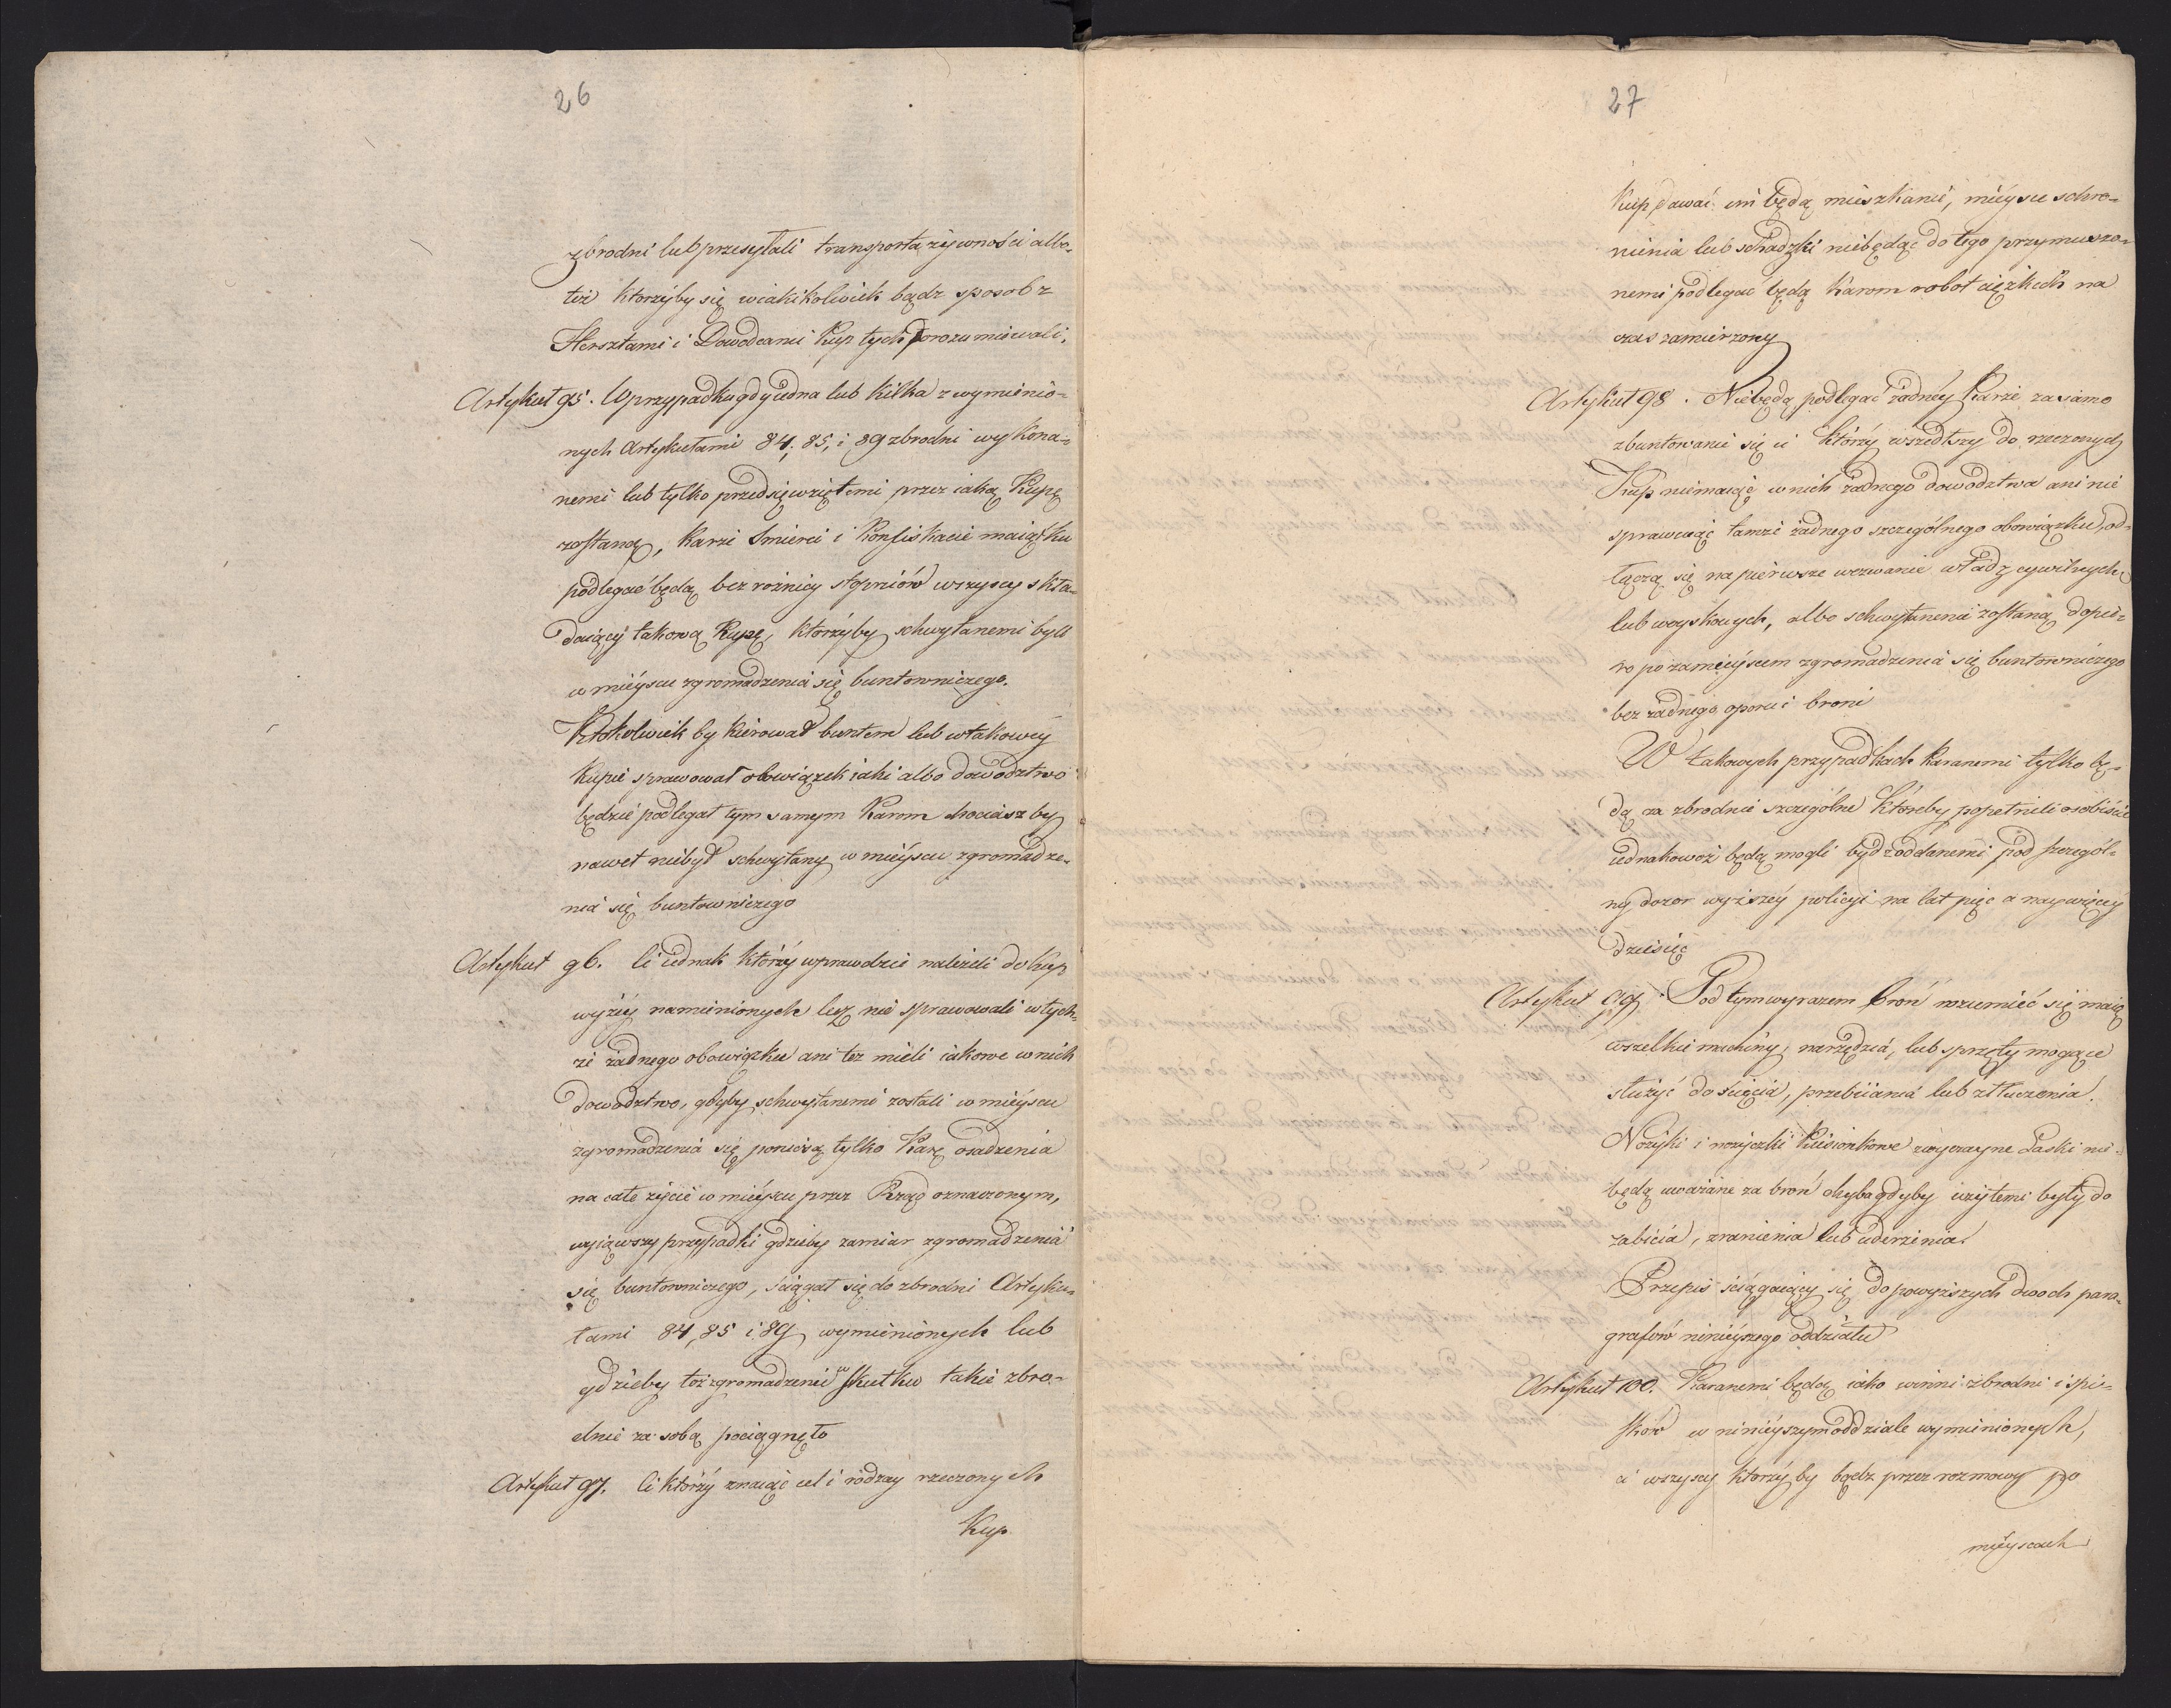 26
zbrodni lub przesyłali transporta żywności albo
też ktorzyby się wiakikolwiek bądz sposob z
Hersztami i Dowodcami Kup tych porozumiewali,
Artykuł 95. W przypadku gdy iedna lub kilka z wymienio-
nych Artykułami 84, 85, i 89 zbrodni wykona-
nemi lub tylko przedsięwziętemi przez iaką Kupę
zostaną, Karze Smierci i Konfiskacie maiątku
podlegać będą bez rożnicy stopniów wszyscy skła-
daiący takową Kupę, ktorzyby schwytanemi byli
w mieyscu zgromadzenia się buntowniczego.
Ktokolwiek by kierował buntem lub w takowey
Kupie sprawował obowiązek iaki albo dowodztwo
będzie podlegał tym samym Karom chociasz by
nawet niebył schwytany w mieyscu zgromadze-
nia się buntowniczego
Artykuł 96. Ci iednak ktorzy wprawdzie należeli do kup
wyżey namienionych lecz nie sprawowali w tych-
że żadnego obowiązku ani też mieli iakowe w nich
dowodztwo, gdyby schwytanemi zostali w mieyscu
zgromadzenia się poniosą tylko Karę osadzenia
na całe życie w mieyscu przez Rząd oznaczonym,
wyiąwszy przypadki gdzieby zamiar zgromadzenia
się buntowniczego, sciągał się do zbrodni Artyku-
łami 84, 85 i 89 wymienionych lub
gdzieby toż zgromadzenie w skutku takie zbro-
dnie za sobą pociągnęło
Artykuł 97. Ci ktorzy znaiąc cel i rodzay rzeczonych
Kup
27
Kup dawać im będą mieszkanie, mieysce schro-
nienia lub schadzki niebędąc do tego przymuszo-
nemi podlegać będą Karom robot ciężkich na
czas zamierzony
Artykuł 98. Niebędą podlegać żadney Karze za samo
zbuntowanie się ci ktorzy wszedłszy do rzeczonych
Kup niemaiąc w nich żadnego dowodztwa ani nie
sprawuiąc tamże żadnego szczególnego obowiązku, od-
łączą się na pierwsze wezwanie władz cywilnych
lub woyskowych, albo schwytanemi zostaną dopie-
ro po za mieyscem zgromadzenia się buntowniczego
bez żadnego oporu i broni
W takowych przypadkach karanemi tylko bę-
dą za zbrodnie szczególne któreby popełnili osobiście
iednakowoż będą mogli bydz oddanemi pod szczegól-
ny dozor wyższey policyi na lat pięc a naywięcey
dziesięc
Artykuł 99. Pod tym wyrazem broń rozumieć się maią
wszelkie machiny, narzędzia, lub sprzęty mogące
służyć do cięcia, przebiiania lub ztłuczenia.
Nożyki i nożyczki kiesionkowe zwyczayne Laski nie-
będą uważane za broń chyba gdyby użytemi były do
zabicia, zranienia lub uderzenia.
Przepis sciągaiący się do powyższych dwoch para-
grafów ninieyszego oddziału
Artykuł 100. Karanemi będą iako winni zbrodni i spi-
sków w ninieyszym oddziale wymienionych,
ci wszyscy ktorzyby bądz przez rozmowy po
mieyscach